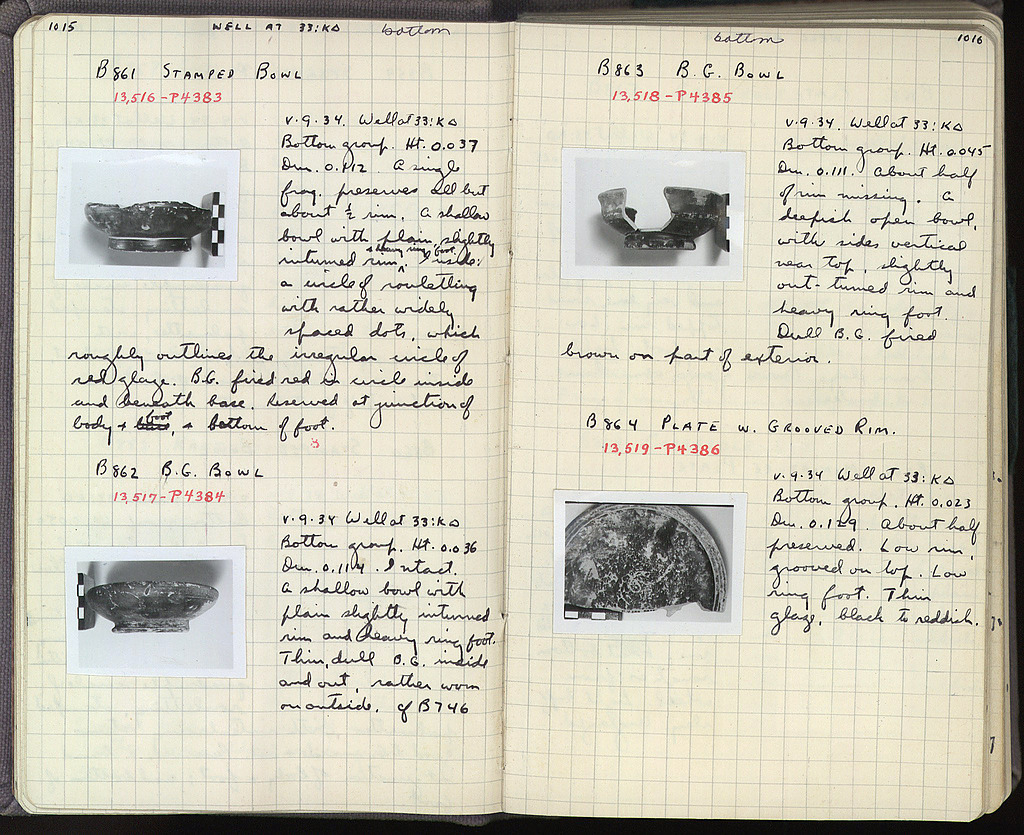 1015
WELL AT 33:KΔ bottom
B861 STAMPED BOWL
13,516-P4383
V.9.34. Well at 33:KΔ
Bottom group. Ht. 0.037
Dm. 0.112 A single
frag. preserves all but
about ½ rim. A shallow
bowl with plain slightly
+ heavy ring foot.
inturned rim, inside:
a circle of rouletting
with rather widely
spaced dots, which
roughly outlines the irregular circle of
red glaze. B.G. fired red in circle inside
and beneath base. Reserved at junction of
foot
body + base, + bottom of foot.
B862 B.G. BOWL
13,517-P4384
V.9.34 Well at 33:KΔ
Bottom group. Ht. 0.036
Dm. 0.114. Intact.
A shallow bowl with
plain slightly inturned
rim and heavy ring foot.
Thin, dull B.G. inside
and out, rather worn
on outside. cf B746
bottom
1016
B863 B.G. BOWL
13,518-P4385
V.9.34. Well at 33:KΔ
Bottom group. Ht. 0.045
Dm. 0.111. About half
of rim missing. A
deepish open bowl,
with sides vertical
near top, slightly
out-turned rim and
heavy ring foot.
Dull B.G. fired
brown on part of exterior.
B864 PLATE W. GROOVED RIM.
13,519-P4386
V.9.34 Well at 33:KΔ
Bottom group. Ht. 0.023
Dm. 0.129. About half
preserved. Low rim,
grooved on top. Low
ring foot. Thin
glaze, black to reddish.